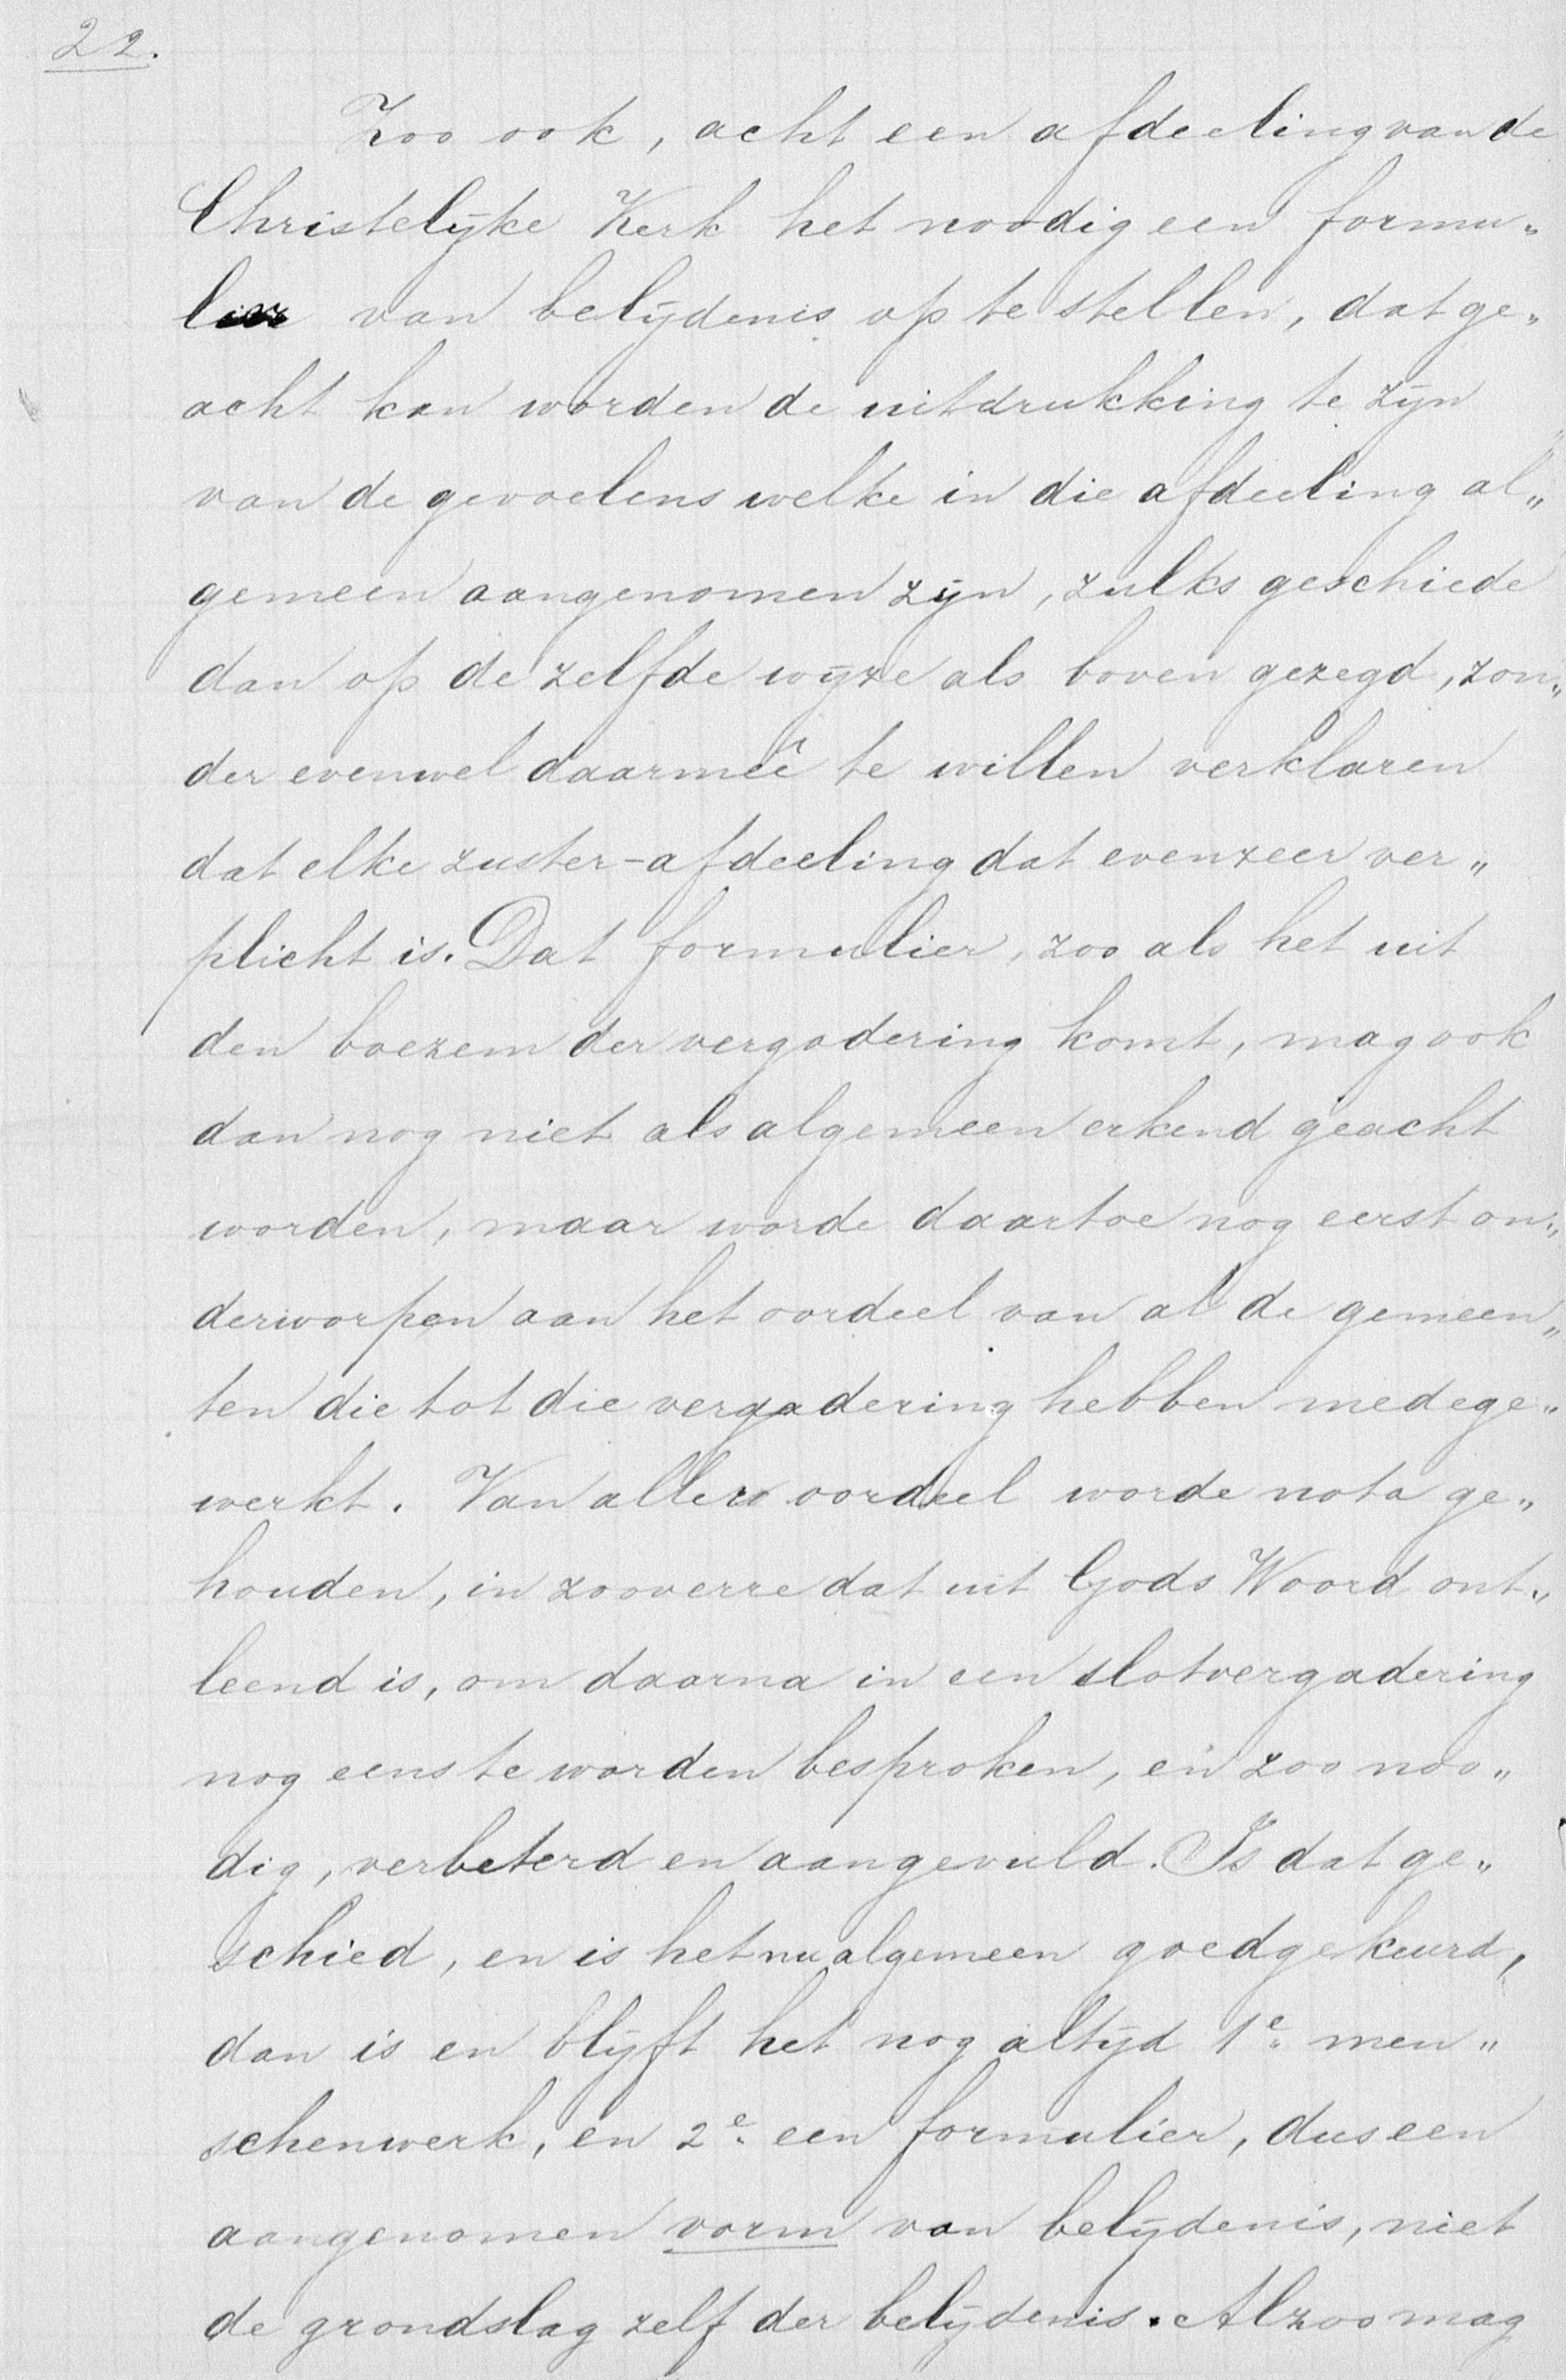 22.
Zoo ook, acht een afdeeling van de
Christelijke Kerk het noodig een formu„
lier van belijdenis op te stellen, dat ge„
acht kan worden de uitdrukking te zijn
van de gevoelens welke in die afdeeling al„
gemeen aangenomen zijn, zulks geschiede
dan op de zelfde wijze als boven gezegd, zon„
der evenwel daarmeê te willen verklaren
dat elke zuster-afdeeling dat evenzeer ver„
plicht is. Dat formulier, zoo als het uit
den boezem der vergadering komt, mag ook
dan nog niet als algemeen erkend geacht
worden, maar worde daartoe nog eerst on„
derworpen aan het oordeel van al de gemeen„
ten die tot die vergadering hebben medege„
werkt. Van aller oordeel worde nota ge„
houden, in zooverre dat uit Gods Woord ont„
leend is, om daarna in een slotvergadering
nog eens te worden besproken, en zoo noo„
dig, verbeterd en aangevuld. Is dat ge„
schied, en is het nu algemeen goedgekeurd,
dan is en blijft het nog altijd 1e. men„
schenwerk, en 2e. een formulier, dus een
aangenomen vorm van belijdenis, niet
de grondslag zelf der belijdenis. Alzoo mag